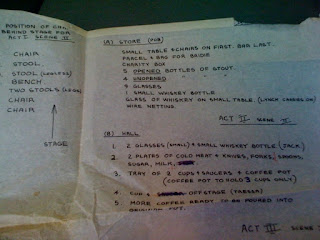 POSITION OF CHAI
BEHIND STAGE FOR
ACT I SCENE II
CHAIR
STOOL
STOOL (LEGLESS)
BENCH
TWO STOOLS
CHAIR
CHAIR
STAGE
(A) STORE (PUB)
SMALL TABLE & CHAIRS ON FIRST. BAR LAST.
PARCEL & BAG FOR BRIDIE
CHARITY BOX
5 OPENED BOTTLES OF STOUT.
4 UNOPENED " " "
4 GLASSES
1 SMALL WHISKEY BOTTLE
GLASS OF WHISKEY ON SMALL TABLE
WIRE NETTING.
ACT II SCENE I
(B) HALL
1. 2 GLASSES (SMALL) & SMALL WHISKEY BOTTLE (JACK.)
2. 2 PLATES OF COLD MEAT & KNIVES, FORKS, SPOONS,
SUGAR, MILK,
3. TRAY OF 8 CUPS & SAUCERS & COFFEE POT
(COFFEE POT TO HOLD 3 CUPS ONLY)
4. OFF-STAGE
5. MORE COFFEE READY TO BE POURED INTO
ACT III SCENE